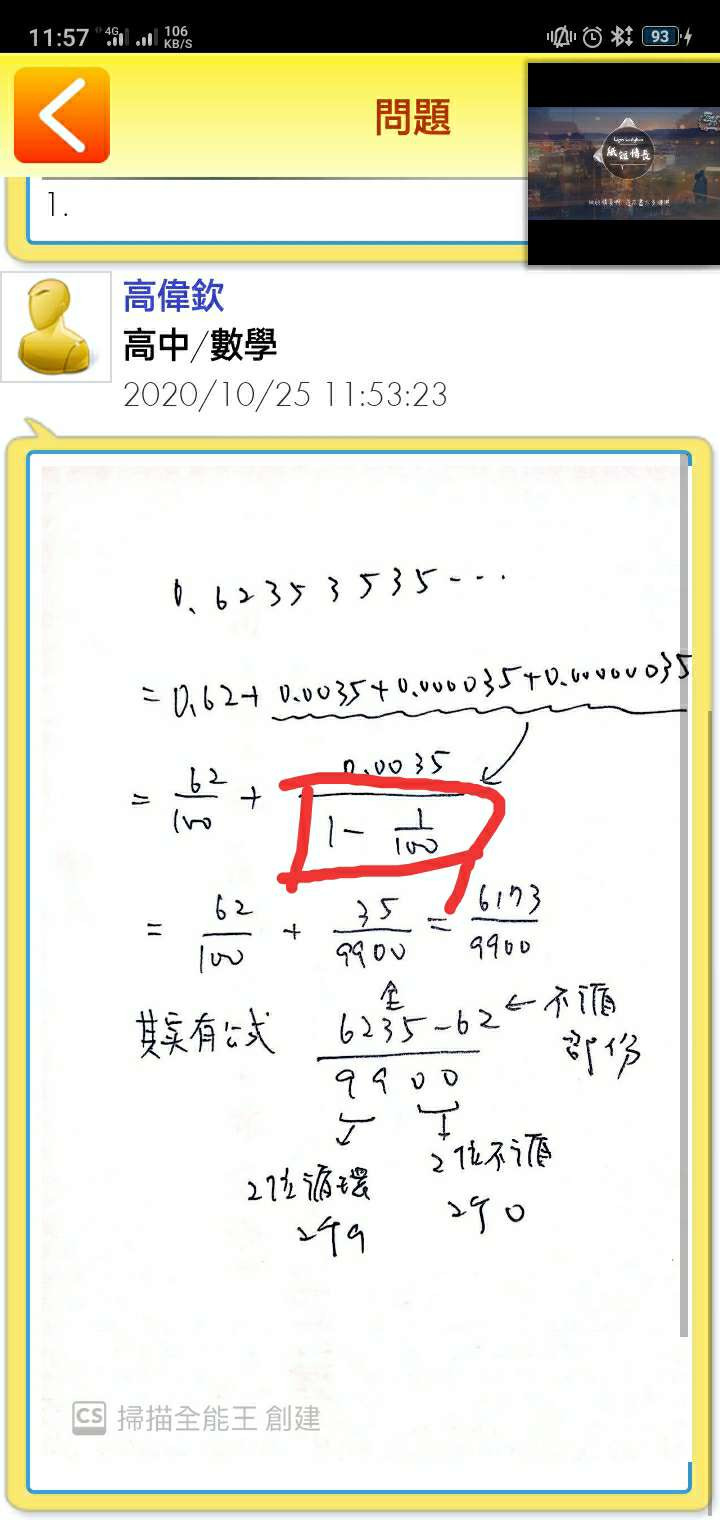 11:57 4G 106 KB/S 93
問題
紙短情長
1.
高偉欽
高中/數學
2020/10/25 11:53:23
0.62353535...
=0.62+0.0035+0.000035+0.00000035
=62/100+0.0035/(1-1/100)
=62/100+35/9900=6173/9900
全
其实有公式 (6235-62)/9900 ←不循
部份
2位循環 2位不循
2个9 2个0
CS 掃描全能王 創建